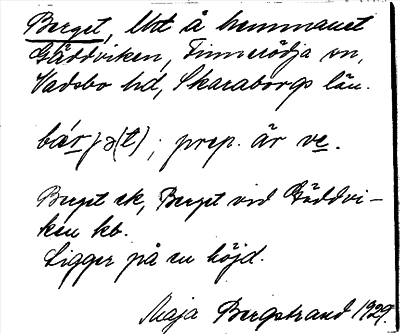 Berget, lht å hemmanet
Gäddviken, Finnerödja sn,
Vadsbo hd, Skaraborgs län.
bárjə(t); prep. är ve.
Berget ek, Berget vid Gäddvi-
ken kb.
Ligger på en höjd.
Maja Bergstrand 1929.